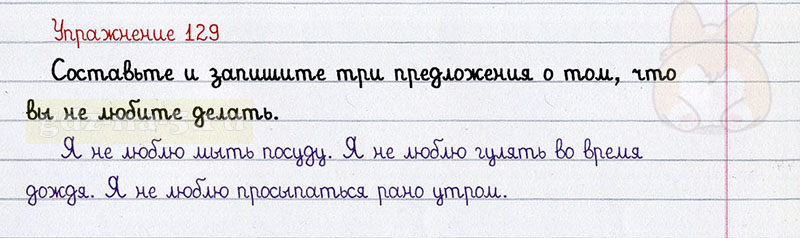 Упражнение 129
Составьте и запишите три предложения о том, что
вы не любите делать.
Я не люблю мыть посуду. Я не люблю гулять во время
дождя. Я не люблю просыпаться рано утром.